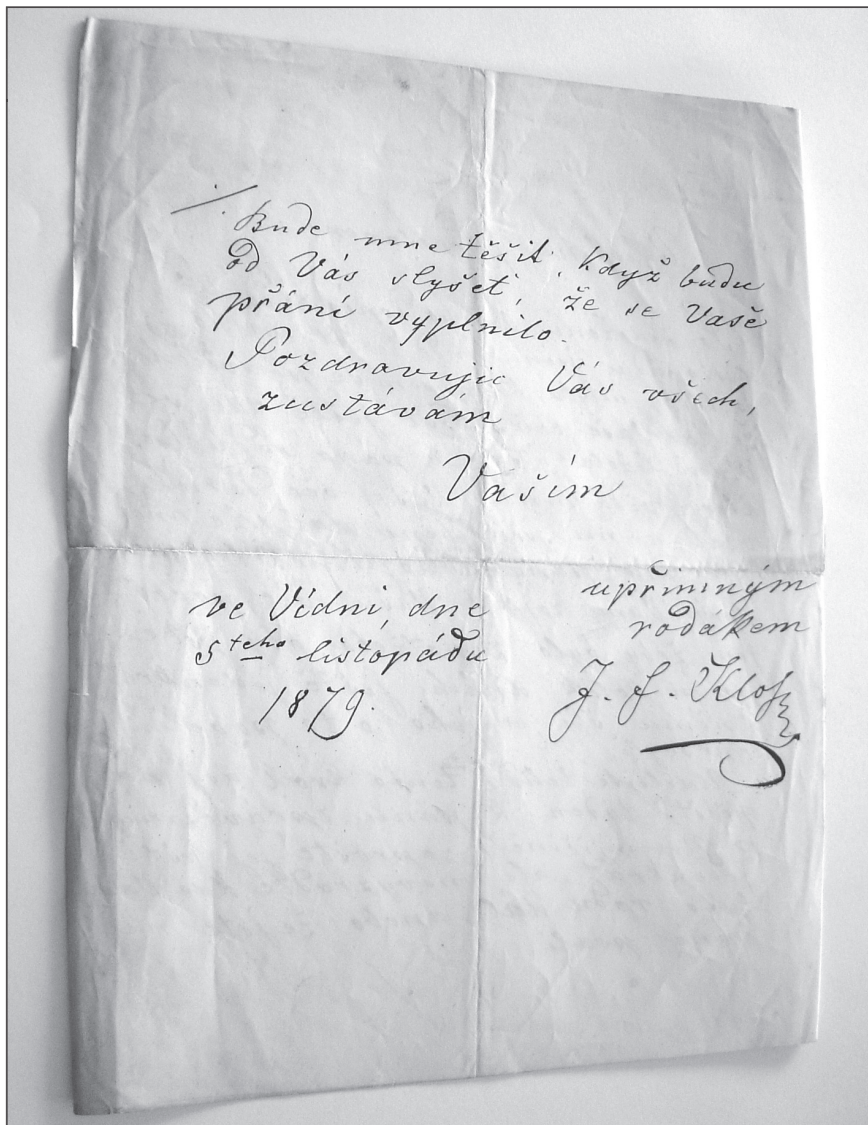 Bude mne těšit, když budu
od Vás slyšet, že se Vaše
přání vyplnilo.
Pozdravujíc Vás všech,
zustávám
Vaším
upřimným
rodákem
J. F. Klofz
ve Vídni, dne
5teho listopádu
1879.